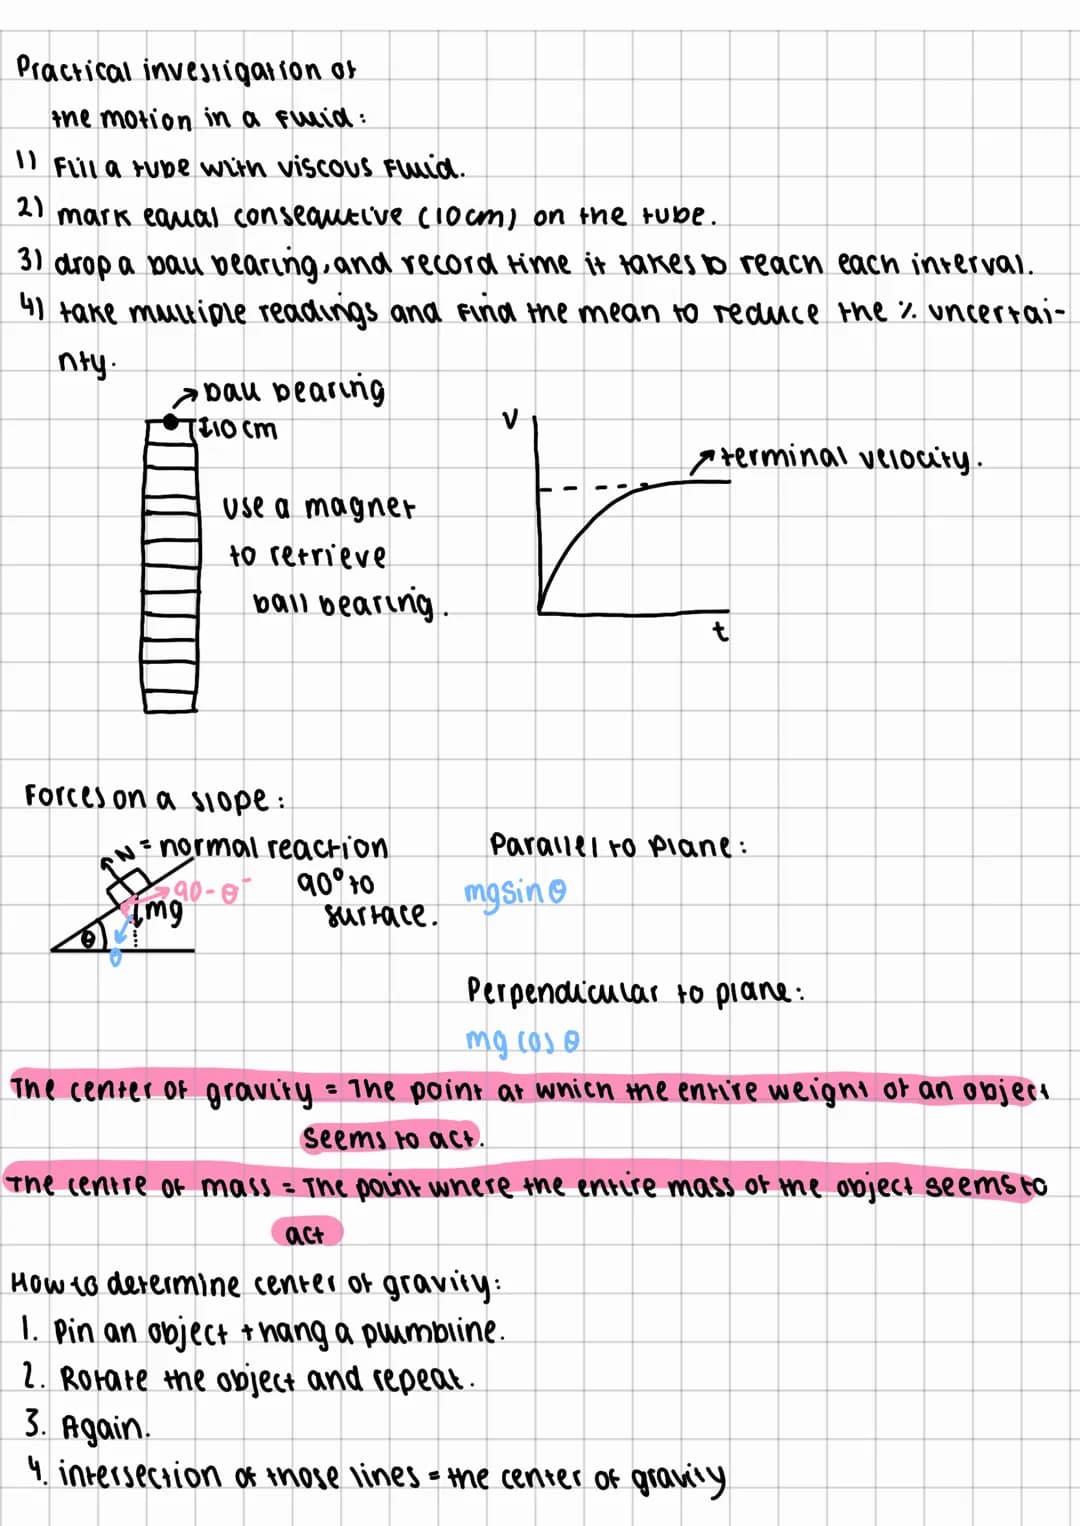 Practical investigation of
the motion in a fluid:
1) Fill a tube with viscous fluid.
2) mark equal consequtive (10cm) on the tube.
3) drop a ball bearing, and record time it takes to reach each interval.
4) take multiple readings and find the mean to reduce the % uncertai-
nty.
ball bearing
10 cm
use a magnet
to retrieve
ball bearing.
v
terminal velocity.
t
Forces on a slope:
N = normal reaction
90° to
surface.
90-θ
mg
θ
θ
Parallel to plane:
mgsinθ
Perpendicular to plane:
mg cos θ
The center of gravity = The point at which the entire weight of an object
seems to act.
The centre of mass = The point where the entire mass of the object seems to
act
How to determine center of gravity:
1. Pin an object + hang a plumbline.
2. Rotate the object and repeat.
3. Again.
4. intersection of those lines = the center of gravity